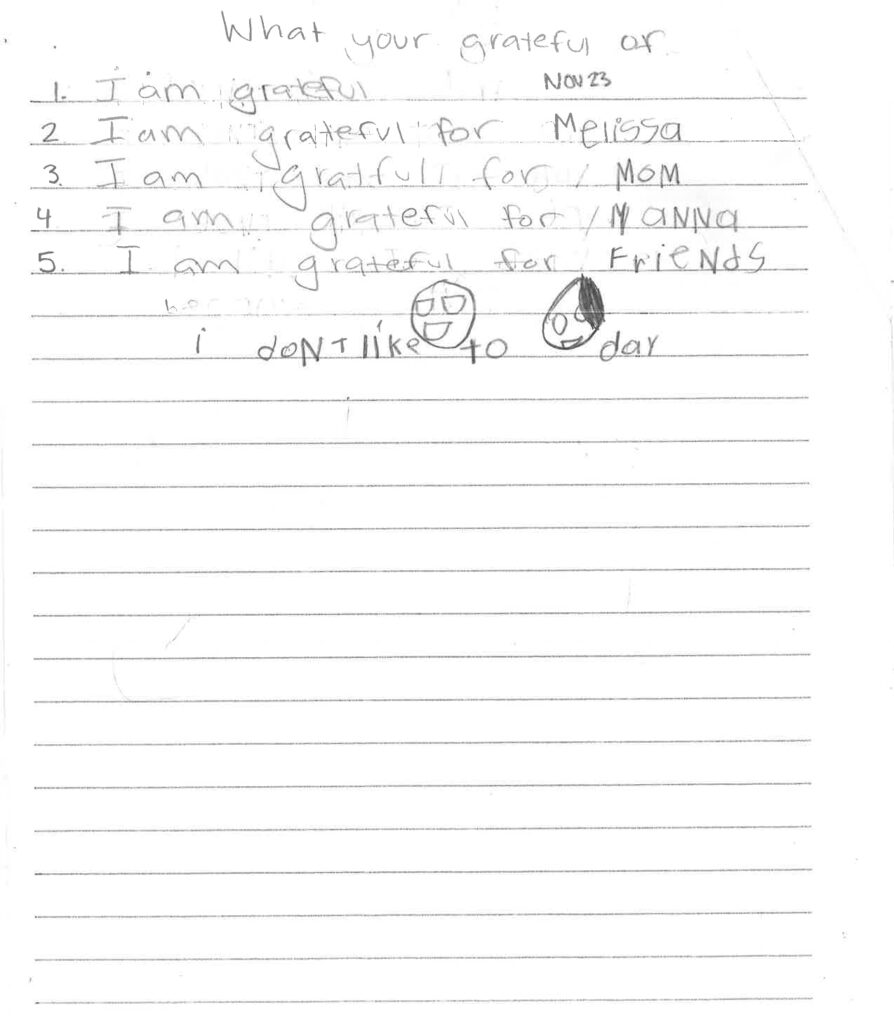 What your grateful or
1. I am grateful Nov 23
2 I am grateful for Melissa
3. I am gratfull for / Mom
4 I am grateful for / Nanna
5. I am grateful for Friends
i don't like to day